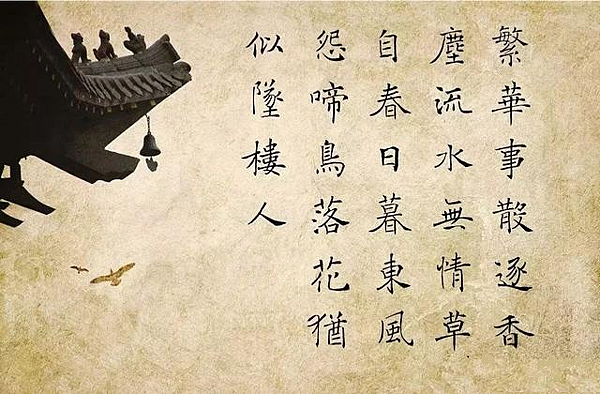 繁華事散逐香
塵流水無情草
自春日暮東風
怨啼鳥落花猶
似墜樓人